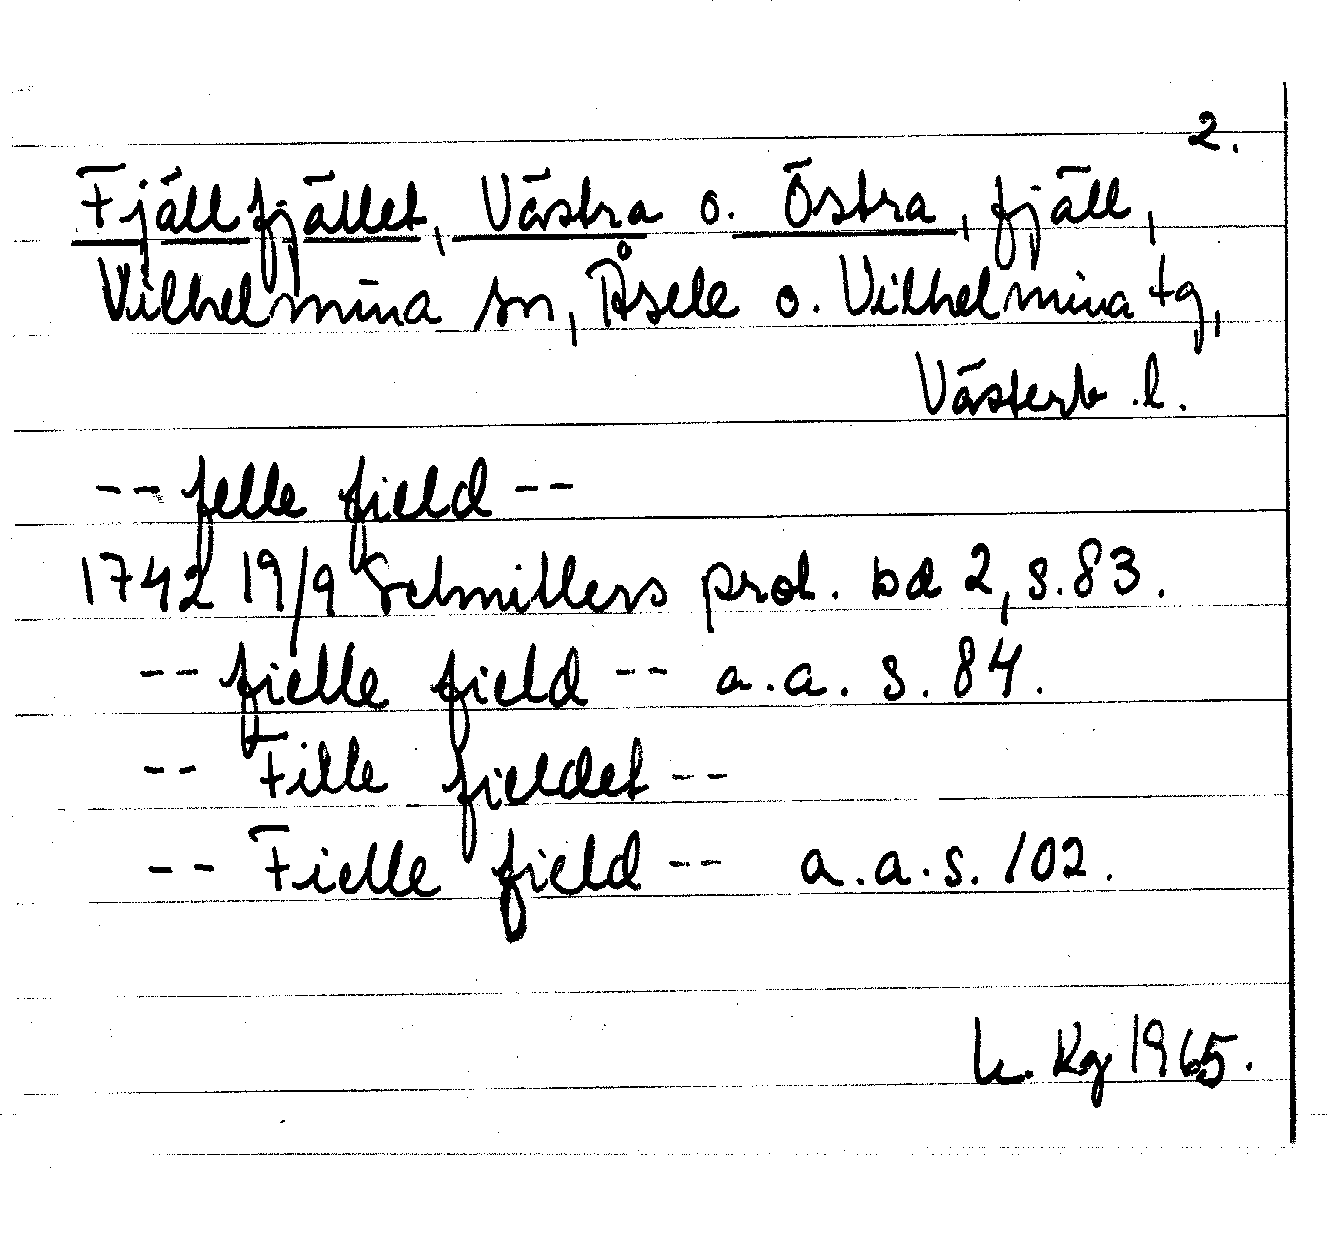 2.
Fjällfjället, Västra o. Östra, fjäll,
Vilhelmina sn, Åsele o. Vilhelmina tg,
Västerb. l.
-- felle field --
1742 19/9 Schnitlers prot. bd 2, s. 83.
-- fielle field -- a.a. s. 84.
-- Fille fieldet --
-- Fielle field -- a.a.s. 102.
Kg 1965.